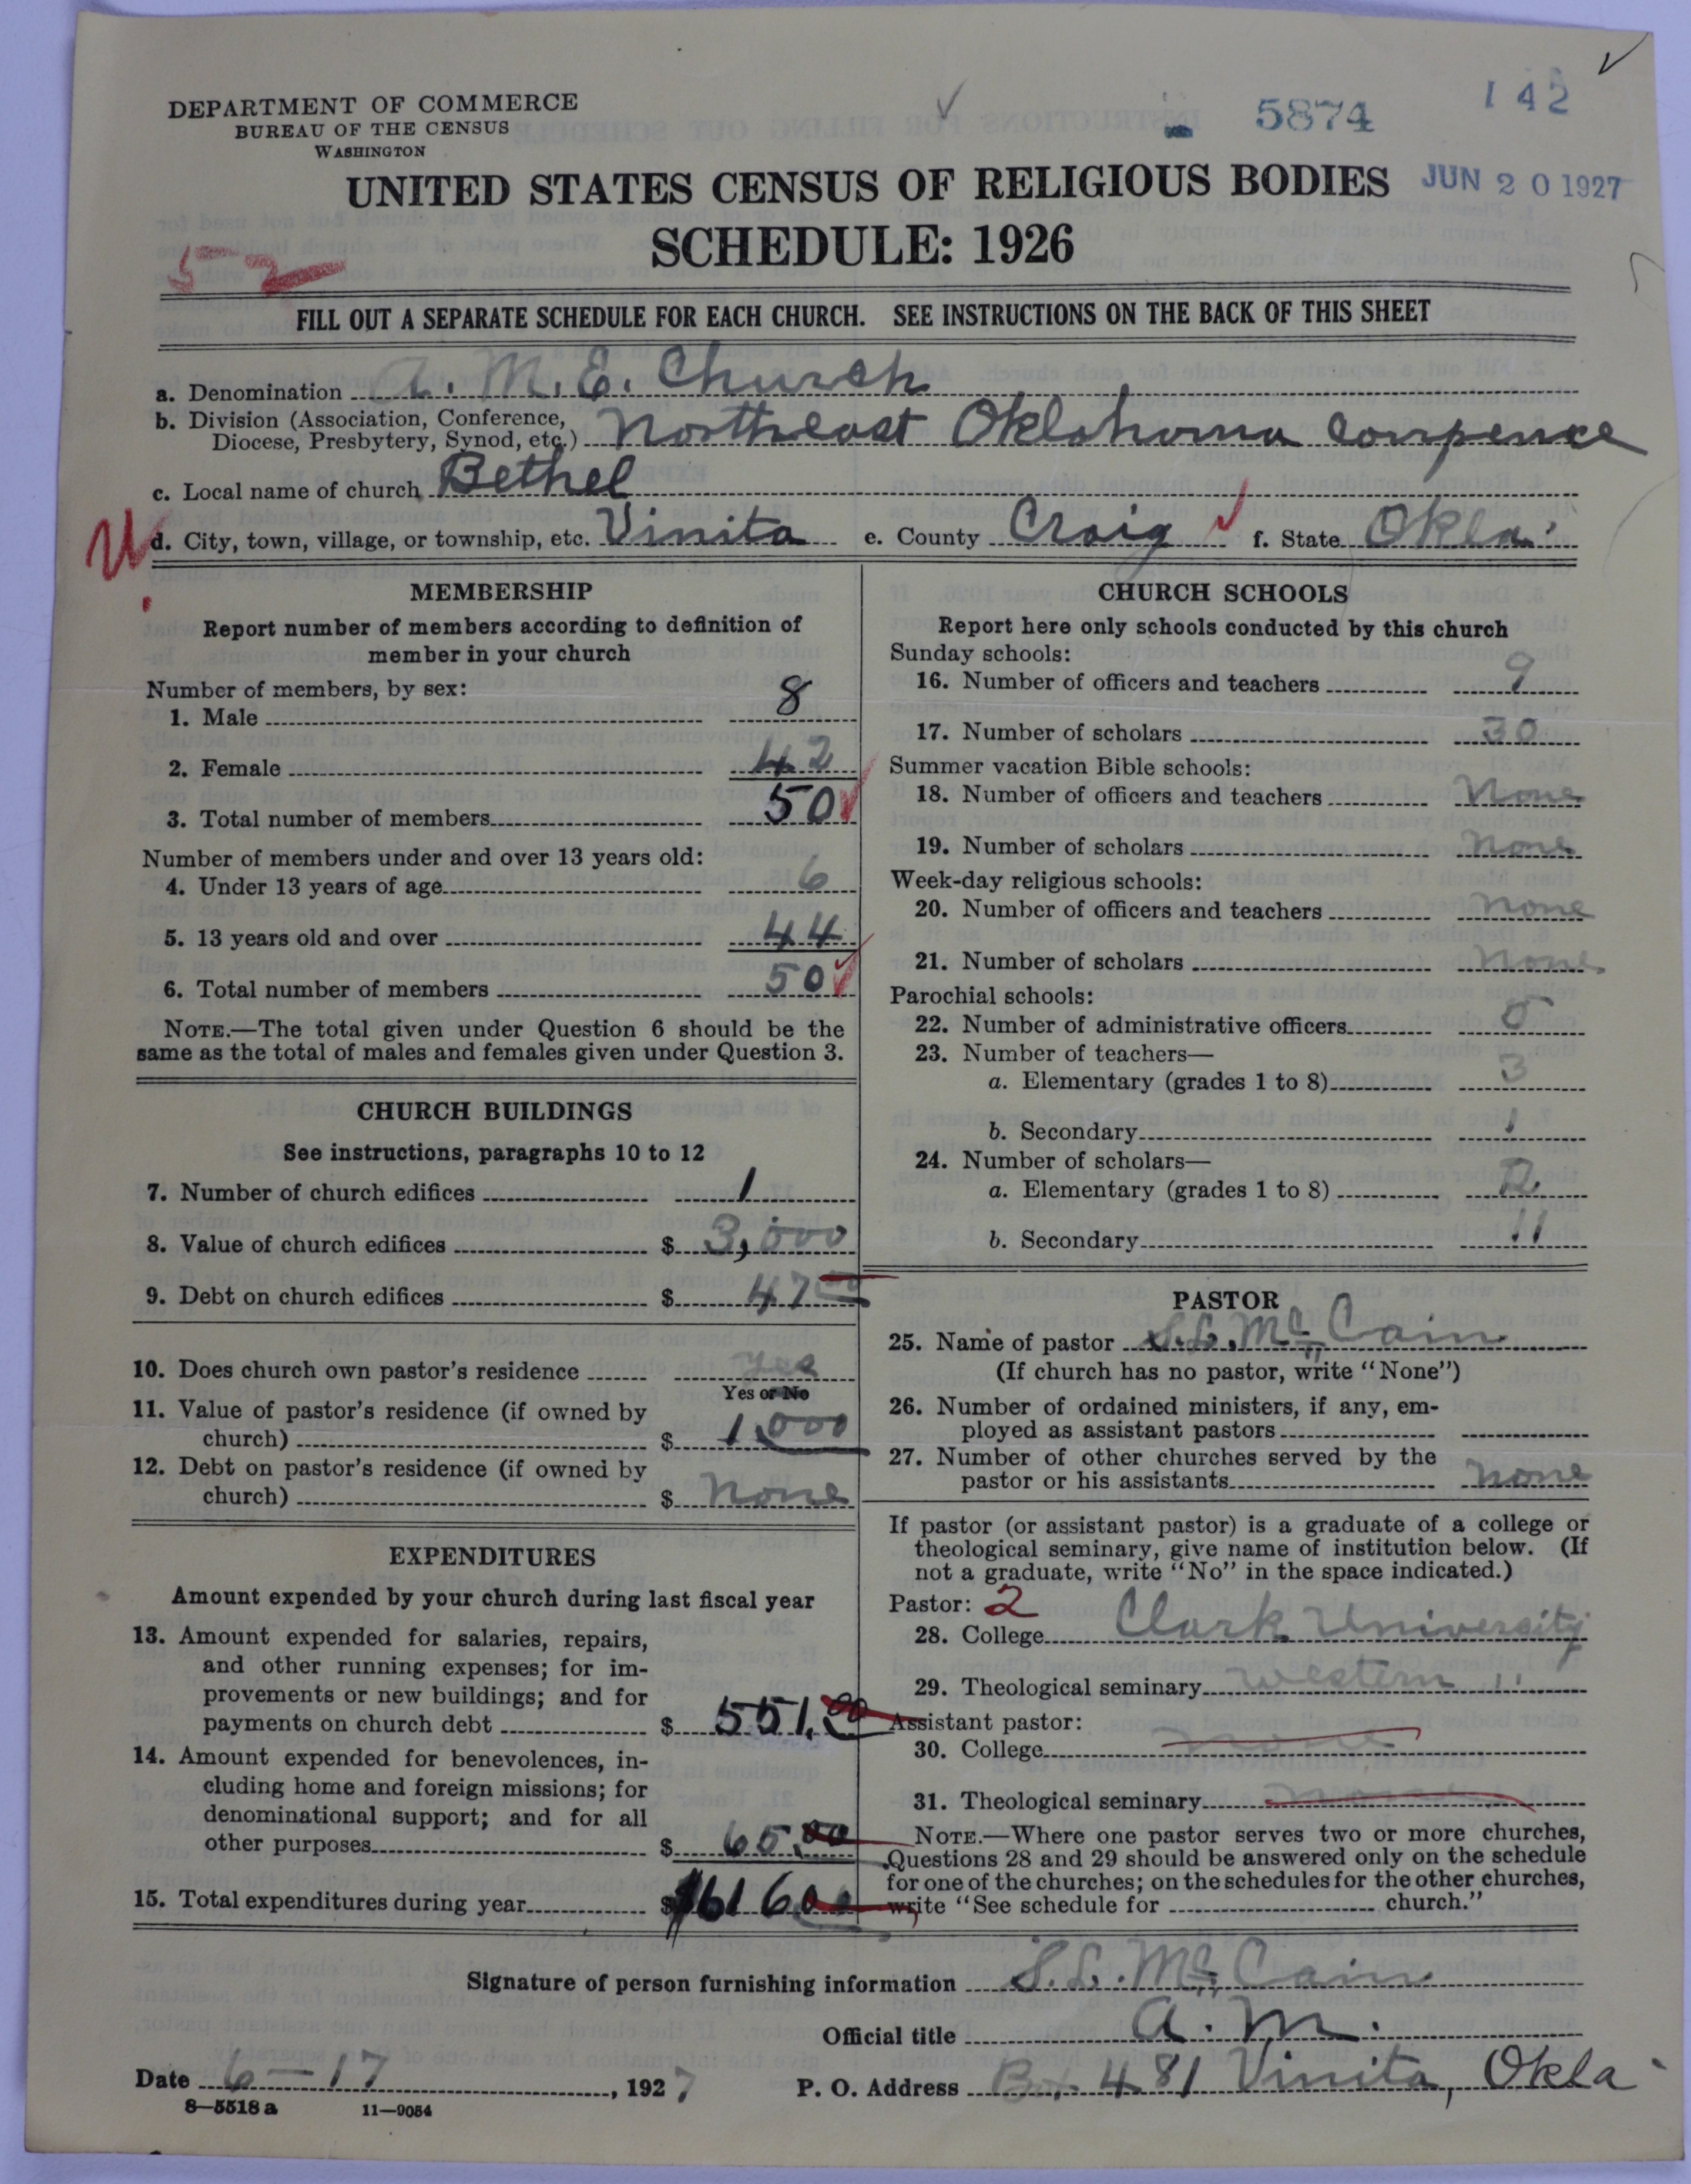 DEPARTMENT OF COMMERCE
BUREAU OF THE CENSUS
WASHINGTON
5874
142
UNITED STATES CENSUS OF RELIGIOUS BODIES
JUN 20 1927
SCHEDULE: 1926
52
FILL OUT A SEPARATE SCHEDULE FOR EACH CHURCH. SEE INSTRUCTIONS ON THE BACK OF THIS SHEET
a. Denomination A. M. E. Church
b. Division (Association, Conference,
Diocese, Presbytery, Synod, etc.) Northeast Oklahoma
c. Local name of church Bethel
d. City, town, village, or township, etc. Vinita e. County Craig f. State Okla.
MEMBERSHIP
Report number of members according to definition of
member in your church
Number of members, by sex:
1. Male 8
2. Female 42
3. Total number of members 50
Number of members under and over 13 years old:
4. Under 13 years of age 6
5. 13 years old and over 44
6. Total number of members 50
NOTE.—The total given under Question 6 should be the
same as the total of males and females given under Question 3.
CHURCH BUILDINGS
See instructions, paragraphs 10 to 12
7. Number of church edifices 1
8. Value of church edifices $ 3,000
9. Debt on church edifices $ 47
10. Does church own pastor's residence Yes
Yes or No
11. Value of pastor's residence (if owned by
church) $ 1,000
12. Debt on pastor's residence (if owned by
church) $ None
EXPENDITURES
Amount expended by your church during last fiscal year
13. Amount expended for salaries, repairs,
and other running expenses; for im-
provements or new buildings; and for
payments on church debt $ 551.00
14. Amount expended for benevolences, in-
cluding home and foreign missions; for
denominational support; and for all
other purposes $ 65.00
15. Total expenditures during year $ 616
CHURCH SCHOOLS
Report here only schools conducted by this church
Sunday schools:
16. Number of officers and teachers 9
17. Number of scholars 30
Summer vacation Bible schools:
18. Number of officers and teachers None
19. Number of scholars None
Week-day religious schools:
20. Number of officers and teachers None
21. Number of scholars None
Parochial schools:
22. Number of administrative officers 0
23. Number of teachers—
a. Elementary (grades 1 to 8) 3
b. Secondary 1
24. Number of scholars—
a. Elementary (grades 1 to 8)
b. Secondary 11
PASTOR
25. Name of pastor S. L. McCain
(If church has no pastor, write "None")
26. Number of ordained ministers, if any, em-
ployed as assistant pastors
27. Number of other churches served by the
pastor or his assistants None
If pastor (or assistant pastor) is a graduate of a college or
theological seminary, give name of institution below. (If
not a graduate, write "No" in the space indicated.)
Pastor: 2
28. College Clark University
29. Theological seminary Western "
Assistant pastor:
30. College None
31. Theological seminary
NOTE.—Where one pastor serves two or more churches,
Questions 28 and 29 should be answered only on the schedule
for one of the churches; on the schedules for the other churches,
write "See schedule for church."
Signature of person furnishing information S. L. McCain
Official title A. M.
Date 6-17, 1927 P. O. Address Box 481 Vinita, Okla
8—5518 a 11—9054